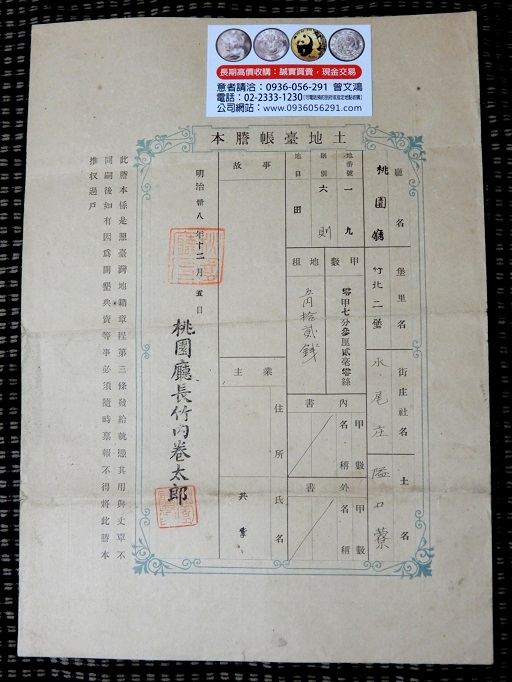 長期高價收購：誠實買賣，現金交易
意者請洽：0936-056-291 曾文鴻
電話：02-2333-1230
公司網站：www.0936056291.com
土地臺帳謄本
廳名
桃園廳
堡里名
竹北二堡
街庄社名
水尾庄
土名
隘口藔
地番號
一九
則別
六則
地目
田
甲數
零甲七分參厘貳毫零絲
地租
五円拾貳錢
內書
甲數
名稱
外書
甲數
名稱
事故
業主
住所
氏名
共業
明治卅八年十二月五日
桃園廳長竹內卷太郎
此謄本係是照臺灣地籍章程第三條發給執憑其用與丈單不
同嗣後如有因爲開墾典賣等事必須隨時稟報不得將此謄本
推收過戶